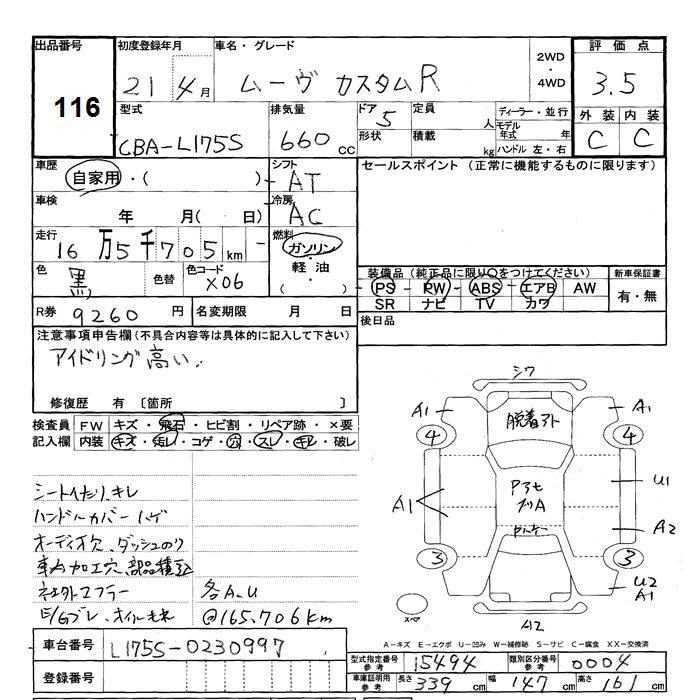 出品番号 初度登録年月 車名・グレード 2WD・4WD 評価点
116 21 4月 ムーヴ カスタムR 3.5
型式 排気量 ドア 定員 人 ディーラー・並行 外装 内装
CBA-L175S 660cc 5 モデル年式 年 C C
形状 積載 kg ハンドル 左・右
車歴 シフト セールスポイント (正常に機能するものに限ります)
自家用・( ) AT
車検 冷房
年 月( 日) AC
走行 燃料
16万5千705km ガソリン・軽油
色 色替 色コード ( )
黒 X06
装備品 (純正品に限り○をつけてください) 新車保証書
PS PW ABS エアB AW 有・無
SR ナビ TV カワ
R券 9260円 名変期限 月 日 後日品
注意事項申告欄(不具合内容等は具体的に記入して下さい)
アイドリング高い.
修復歴 有 〔箇所 〕
検査員 FW キズ・飛石・ヒビ割・リペア跡・×要
記入欄 内装 キズ・汚レ・コゲ・穴・スレ・キレ・破レ
シートへたり、キレ
ハンドルカバーハゲ
オーディオ穴、ダッシュのり
車内加工穴、部品積込
社外マフラー 各A.U
E/Gブレ、オイルモレ @165,706km
シワ
A1 脱着アト A1
4 4
A1 Pアセ U1
A2
3 3
U2
A1
スペア A2
A-キズ E-エクボ U-凹み W-補修跡 S-サビ C-腐食 XX-交換済
車台番号 L175S-0230997
型式指定番号 参考 15494 類別区分番号 参考 0004
登録番号 車庫証明用 参考 長さ 339cm 幅 147cm 高さ 161cm